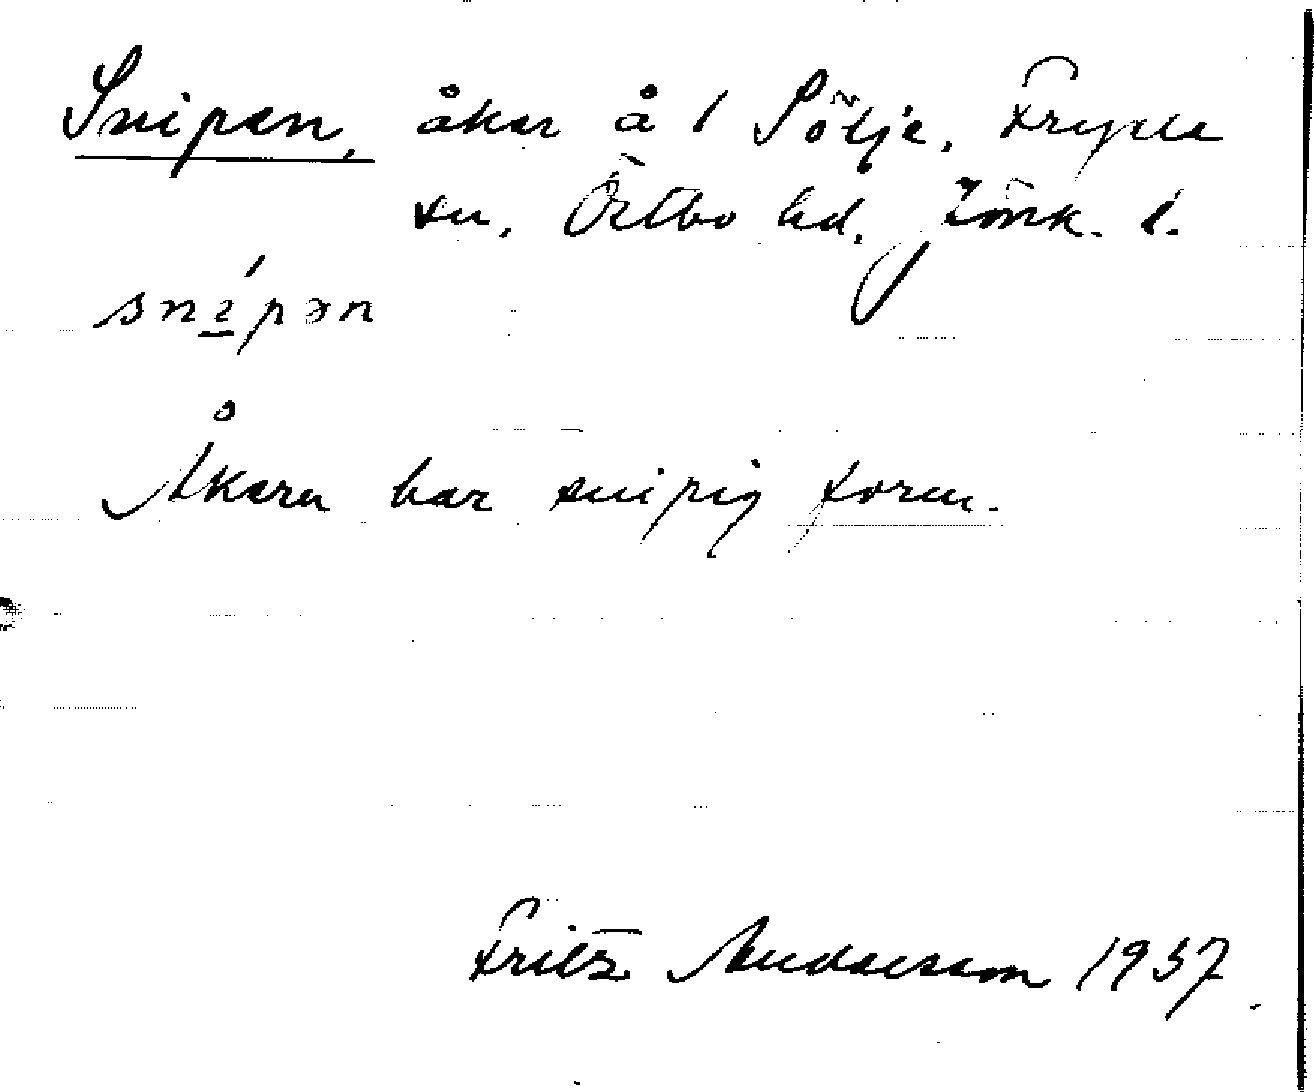 Snipen, åker å 1 Sölje, Fryele
sn, Östbo hd, Jönk. l.
snípən
Åkern har snipig form.
Fritz Andersson 1937